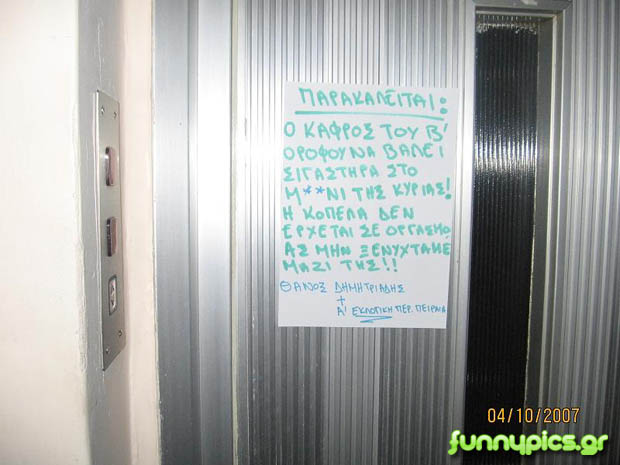 ΠΑΡΑΚΑΛΕΙΤΑΙ:
Ο ΚΑΦΡΟΣ ΤΟΥ Β'
ΟΡΟΦΟΥ ΝΑ ΒΑΛΕΙ
ΣΙΓΑΣΤΗΡΑ ΣΤΟ
Μ**ΝΙ ΤΗΣ ΚΥΡΙΑΣ!
Η ΚΟΠΕΛΑ ΔΕΝ
ΕΡΧΕΤΑΙ ΣΕ ΟΡΓΑΣΜΟ,
ΑΣ ΜΗΝ ΞΕΝΥΧΤΑΜΕ
ΜΑΖΙ ΤΗΣ!!
ΘΑΝΟΣ ΔΗΜΗΤΡΙΑΔΗΣ
+
Α' ΕΚΛΟΓΙΚΗ ΠΕΡ. ΠΕΙΡΑΙΑ
04/10/2007
funnypics.gr